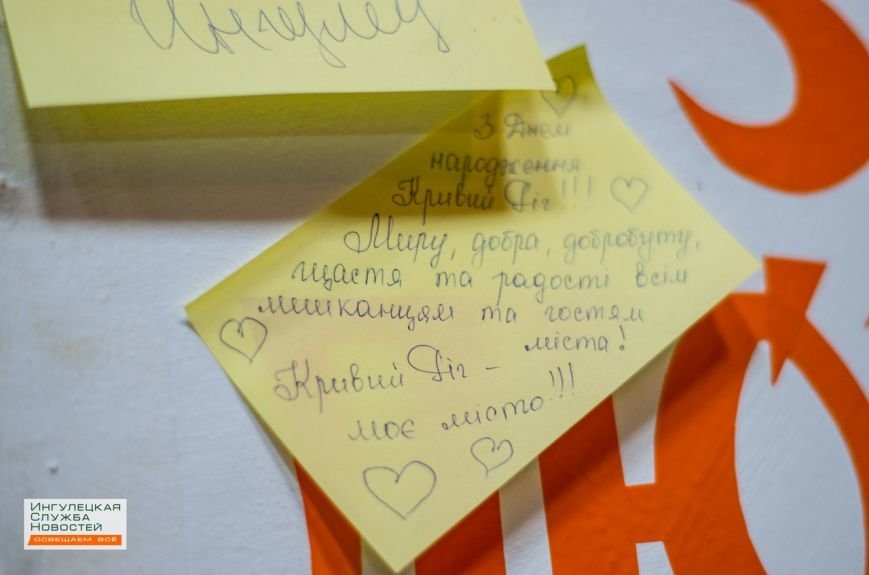 Ингулец
З Днем
народження
Кривий Ріг!!!
Миру, добра, добробуту,
щастя та радості всім
мишканцям та гостям
міста!
Кривий Ріг -
моє місто!!!
ИНГУЛЕЦКАЯ
СЛУЖБА
НОВОСТЕЙ
ОСВЕЩАЕМ ВСЁ